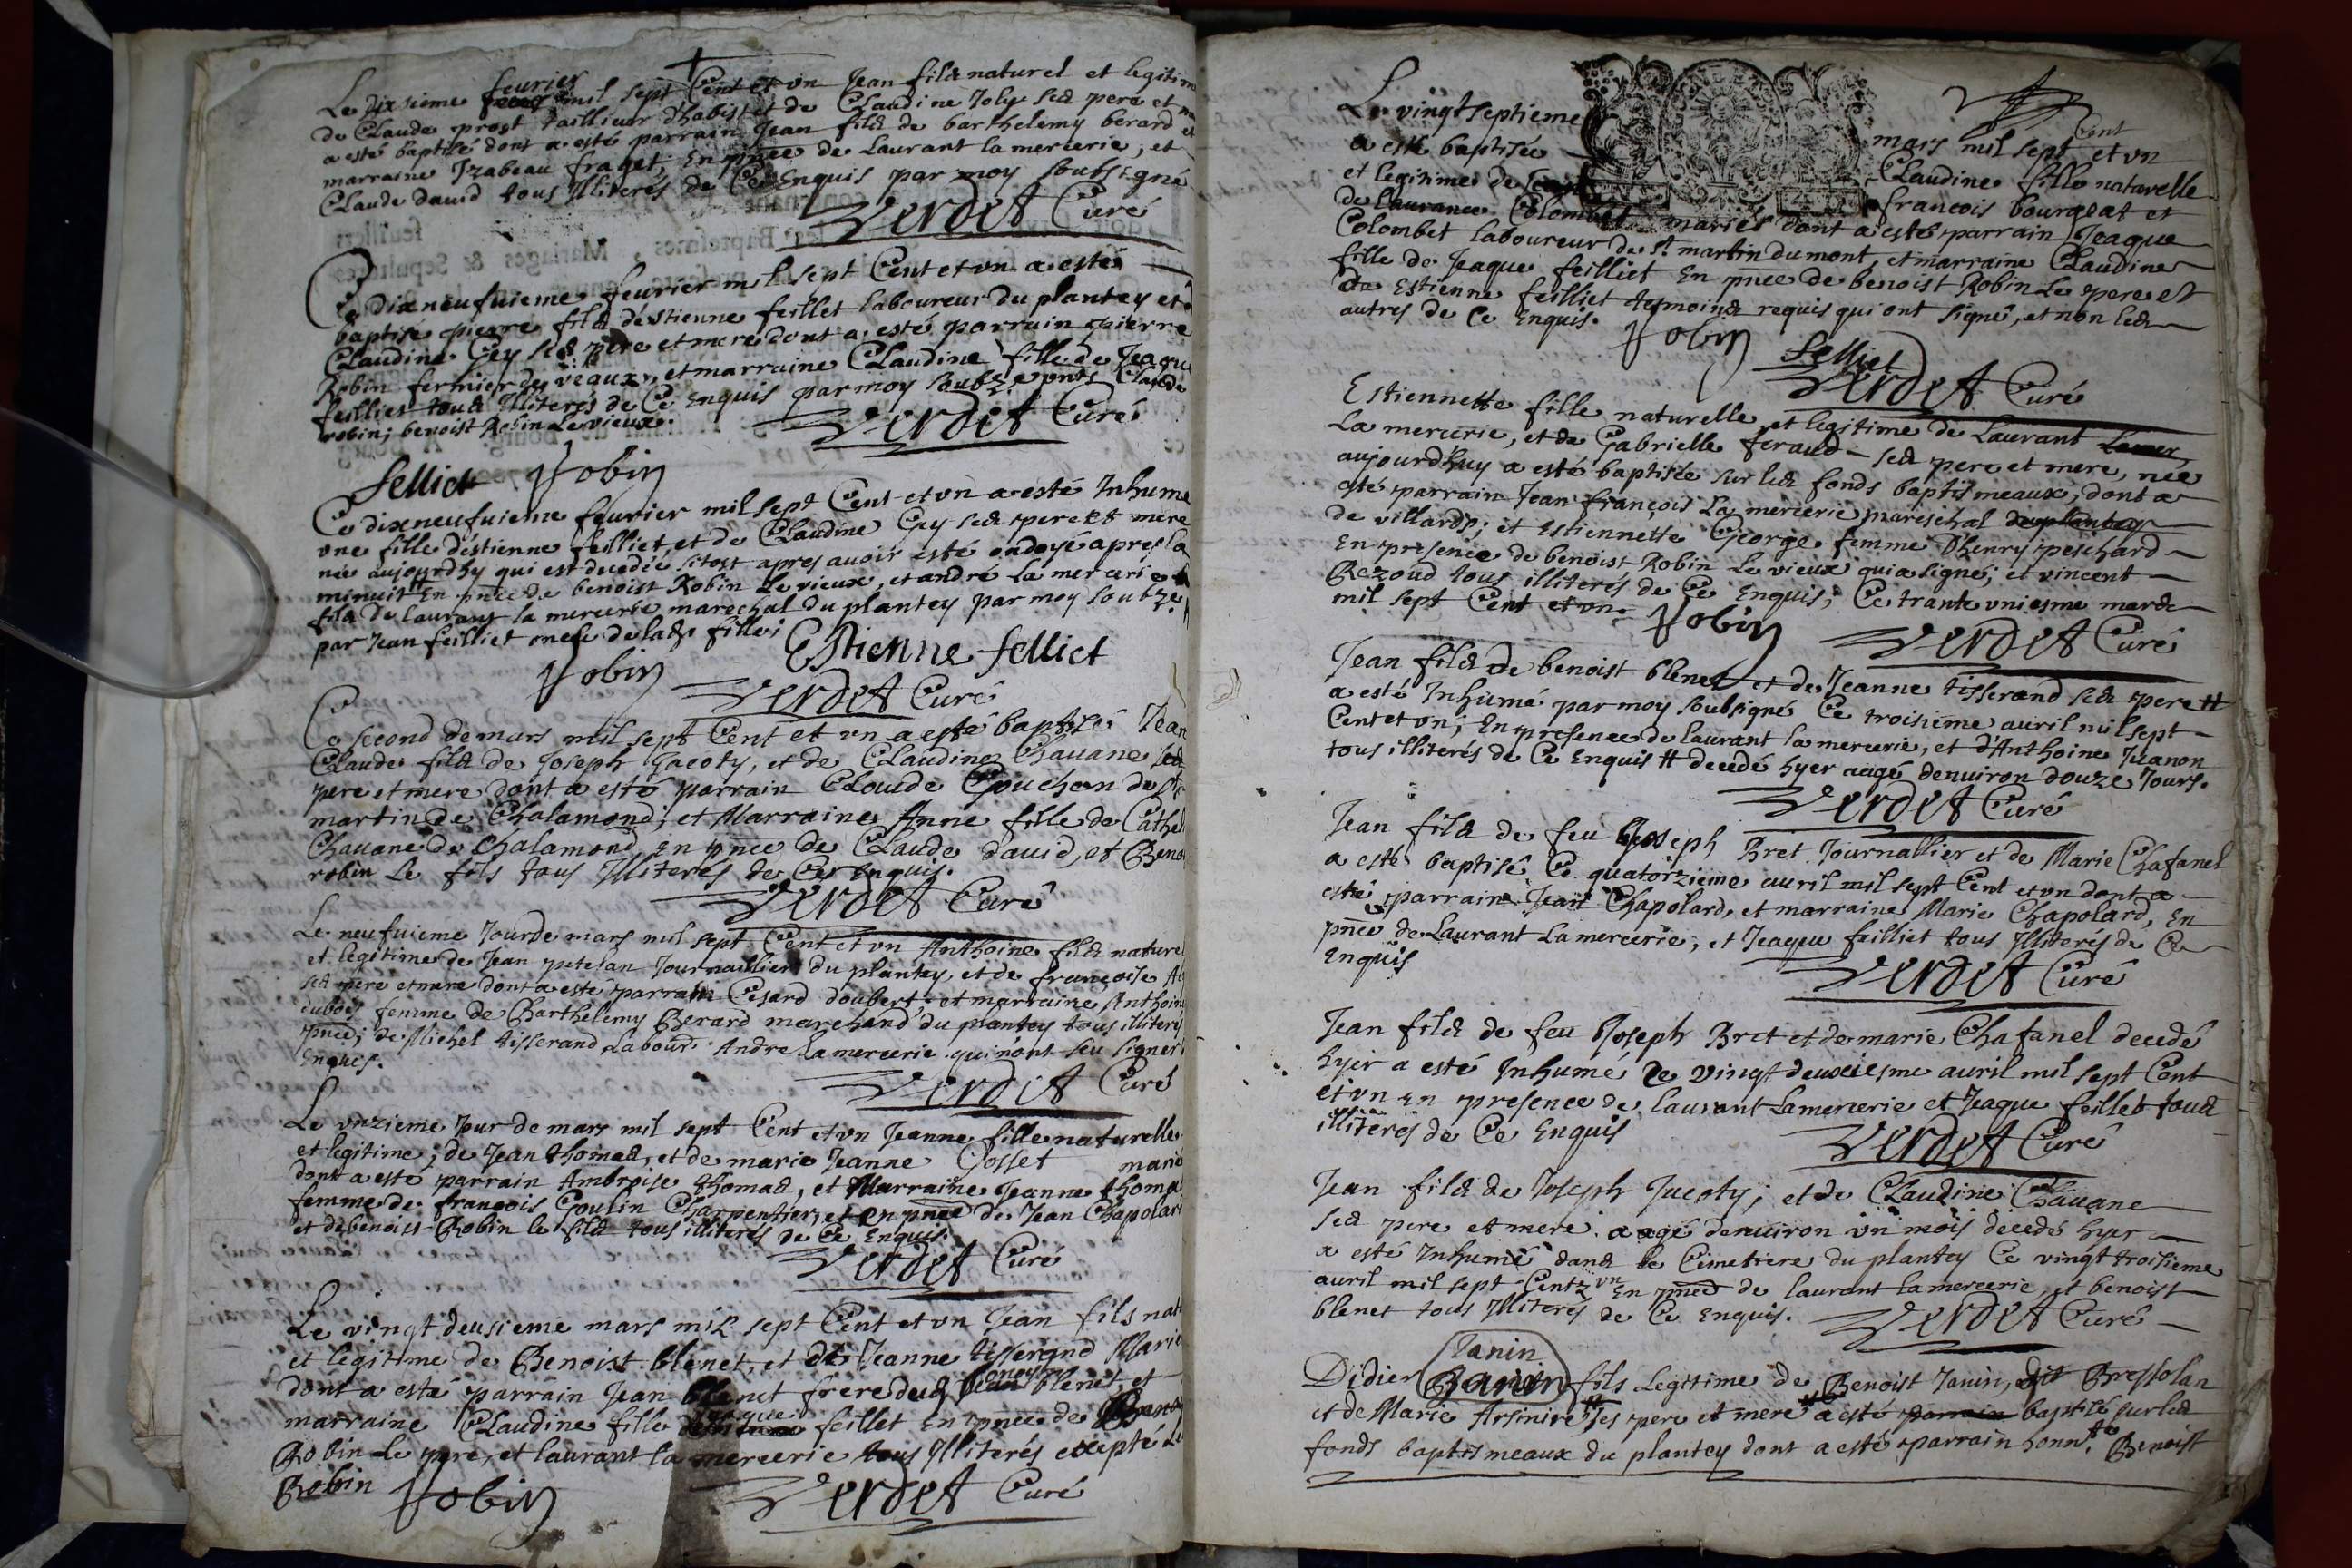 feurier
Le dixsieme mil sept Cent et vn Jean fils naturel et legitim
de Claude prost tailliur d'habist et de Claudine Joly ses pere et
a esté baptisé dont a esté parrain Jean fils de barthelemy berard et
marraine Izabeau fraget, En pñce de Laurant la mercerie, et
Claude dauid tous Illiterés de Ce Enquis par moy soubsigné
Verdet Curé
Ce dixneufuieme feurier mil sept Cent et vn a esté
baptisé pierre fils d'estienne feillet laboureur du plantey et
Claudine Gey ses pere et mere dont a esté parrain pierre
Robin fermier des veaux, et marraine Claudine fille de Jaque
feilliet tous Illiterés de Ce Enquis par moy Claude
robin; benoist Robin Le vieux.
Verdet Curé
felliet Robin
Ce dixneufuieme feurier mil sept Cent et vn a esté Inhume
vne fille d'estienne feilliet, et de Claudine Gey ses pere et mere
née aujourdhy qui est decedée sitost apres auoir esté ondoyé apres la
minuit En pñce de benoist Robin Le vieux, et andré la mercerie
fils de laurant la mercerie marechal du plantey par moy
par Jean feilliet oncle de fille;
Estienne felliet
Robin
Verdet Curé
Ce second de mars mil sept Cent et vn a esté baptisé Jean
Claude fils de Joseph Jacoty, et de Claudine Chauane ses
pere et mere dont a esté parrain Claude Gouchon de st
martin de Chalamond; et Marraine Anne fille de Cathel
Chauane de Chalamond, en pñce de Claude dauid, et Beno
robin Le fils tous Illiterés de Ce Enquis.
Verdet Curé
Le neufuieme Jour de mars mil sept Cent et vn Anthoine fils nature
et legitime de Jean putelan Journaillier du plantey, et de françoise
ses pere et mere dont a esté parrain Cesard doubert et marraine Anthoin
dubois femme de Barthelemy Berard marchand du plantey tous illiteré
pñce; de Michel tisserand Labour. Andre La mercerie qui n'ont seu signer
Enquis.
Verdet Curé
Le vnzieme Jour de mars mil sept Cent et vn Jeanne fille naturelle
et legitime; de Jean thomas, et de marie Jeanne Gosset marié
dont a esté parrain Ambroise thomas, et Marraine Jeanne thoma
femme de françois Goulin Charpentier, et en pñce de Jean Chapolar
et de benoist Robin le fils tous illiterés de Ce Enquis.
Verdet Curé
Le vingt deusieme mars mil sept Cent et vn Jean fils nat
et legitime de Benoist blenet, et de Jeanne tisserand Marié
dont a esté parrain Jean blenet frere dud blenet, et
marraine Claudine fille de Jaque feillet En pñce de Beno
Robin Le pere, et laurant la mercerie tous Illiterés excepté Le
Robin
Robin
Verdet Curé
Le vingtseptieme mars mil sept Cent et vn
a esté baptisée Claudine fille naturelle
et legitime de françois bourgeat et
de laurance Colombet mariés dont a esté parrain Jeaque
Colombet laboureur de st martin dumont, et marraine Claudine
fille de Jeaque feilliet En pñce de benoist Robin Le pere et
de Estienne feilliet tesmoins requis qui ont signé, et non les
autres de Ce Enquis.
Robin
felliet
Verdet Curé
Estiennette fille naturelle et legitime de Laurant Lamer
La mercerie, et de Gabrielle feraud ses pere et mere, née
aujourdhuy a esté baptisée sur les fonds baptismeaux, dont a
esté parrain Jean françois La mercerie mareschal duplantey
de villards; et Estiennette George femme D'henry peschard
En presence de benoist Robin Le vieux qui a signé; et vincent
Rezoud tous illiterés de Ce Enquis; Ce trante vniesme mars
mil sept Cent et vn.
Robin
Verdet Curé
Jean fils de benoist blenet et de Jeanne tisserand ses pere #
a esté Inhumé par moy soubsigné Ce troisieme auril mil sept
Cent et vn; En presence de laurant la mercerie, et d'Anthoine Jeanon
tous illiterés de Ce Enquis # decedé hyer aagé denuiron douze Jours.
Verdet Curé
Jean fils de feu Joseph Bret Journallier et de Marie Chafanel
a esté baptisé Ce quatorzieme auril mil sept Cent et vn dont a
esté parrain Jean Chapolard, et marraine Marie Chapolard, En
pñce de Laurant La mercerie, et Jeaque feilliet tous Illiterés de Ce
Enquis
Verdet Curé
Jean fils de feu Joseph Bret et de marie Chafanel decedé
hyer a esté Inhumé Ce vingt deuxiesme auril mil sept Cent
et vn en presence de laurant Lamercerie et Jeaque feillet tous
illiterés de Ce Enquis
Verdet Curé
Jean fils de Joseph Jucoty; et de Claudine Chauane
ses pere et mere aagé denuiron vn mois decedé hyer
a esté Inhumé dans le Cimetiere du plantey Ce vingt troisieme
auril mil sept Cent vn En pñce de laurant la mercerie, et benoist
blenet tous Illiterés de Ce Enquis.
Verdet Curé
Janin
Didier Banin fils Legitime de Benoist Janin, dit Bressolan
et de Marie Arsinire ses pere et mere a esté parrain baptisé sur les
fonds baptismeaux du plantey dont a esté parrain honnte Benoist